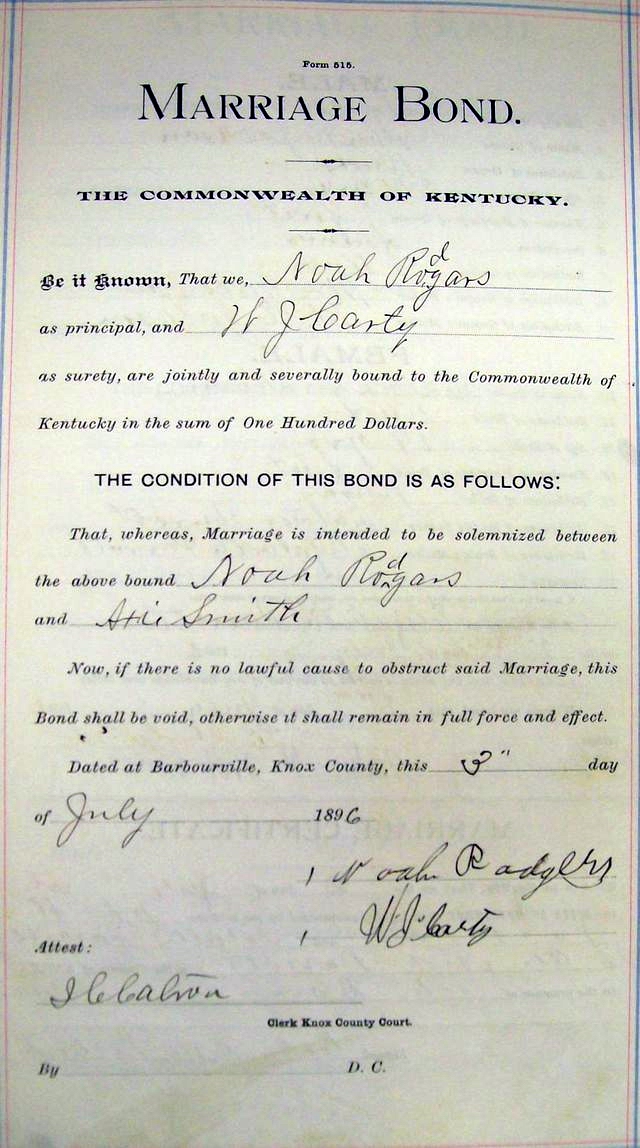 Form 515.
MARRIAGE BOND.
THE COMMONWEALTH OF KENTUCKY.
Be it Known, That we, Noah Rodgars
as principal, and W J Carty
as surety, are jointly and severally bound to the Commonwealth of
Kentucky in the sum of One Hundred Dollars.
THE CONDITION OF THIS BOND IS AS FOLLOWS:
That, whereas, Marriage is intended to be solemnized between
the above bound Noah Rodgars
and Smith
Now, if there is no lawful cause to obstruct said Marriage, this
Bond shall be void, otherwise it shall remain in full force and effect.
Dated at Barbourville, Knox County, this 3" day
of July 1896
Noah Rodgers
W J Carty
Attest:
Clerk Knox County Court.
By D. C.